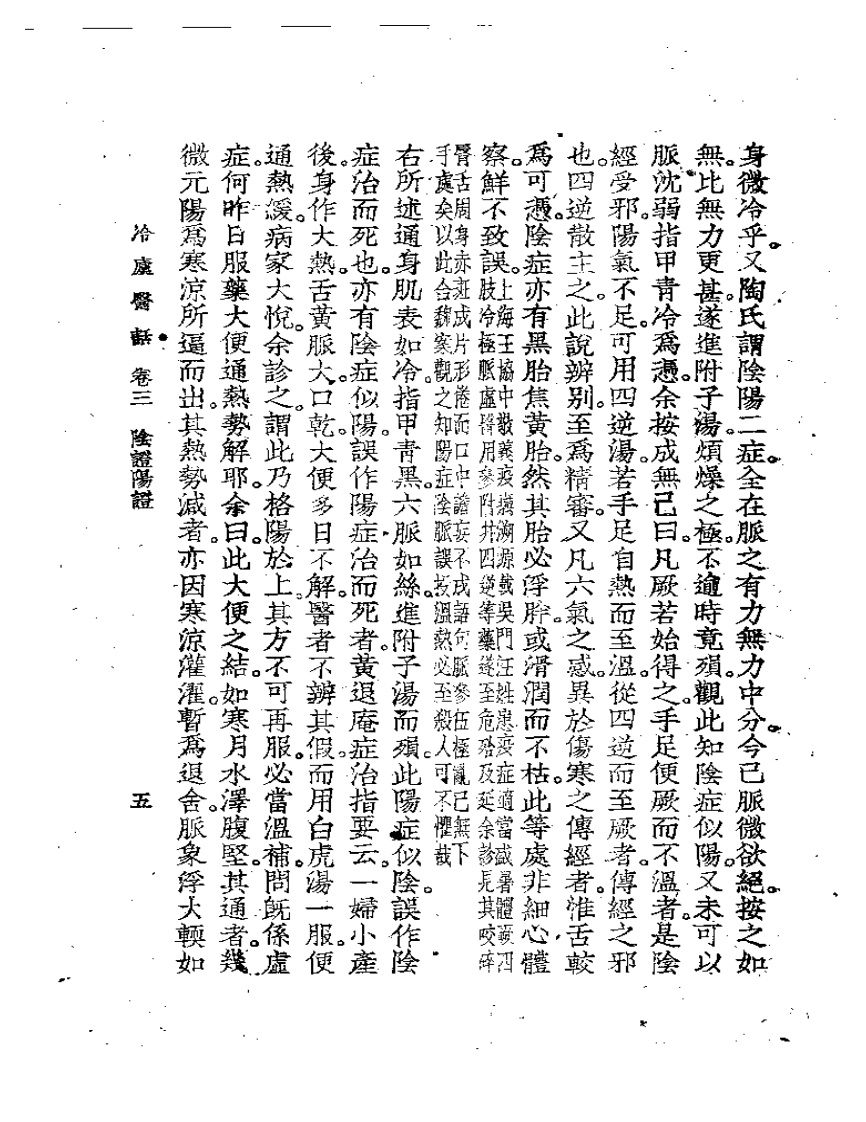 身微冷乎。又陶氏謂陰陽二症。全在脈之有力無力中分。今已脈微欲絕。按之如
無。比無力更甚。遂進附子湯。煩燥之極。不逾時竟殞。觀此知陰症似陽。又未可以
脈沈弱指甲青冷爲憑。余按成無己曰。凡厥若始得之。手足便厥而不溫者。是陰
經受邪。陽氣不足。可用四逆湯。若手足自熱而至溫。從四逆而至厥者。傳經之邪
也。四逆散主之。此說辨別。至爲精審。又凡六氣之感。異於傷寒之傳經者。惟舌較
爲可憑。陰症亦有黑胎焦黃胎。然其胎必浮胖。或滑潤而不枯。此等處非細心體
察。鮮不致誤。
上海王協中敬義疫癘溯源載吳門汪姓患疫症適當盛暑體厥四
肢冷極脈虛醫用參附幷四逆等藥遂至危殆及延余診見其咬碎
脣舌周身赤斑成片形倦而口中譫妄不成語句脈參伍極亂已無下
手處矣以此合魏案觀之知陽症陰脈誤投溫熱必至殺人可不懼哉
右所述通身肌表如冷。指甲青黑。六脈如絲。進附子湯而殞。此陽症似陰。誤作陰
症治而死也。亦有陰症似陽。誤作陽症治而死者。黃退庵症治指要云。一婦小產
後。身作大熱。舌黃脈大。口乾。大便多日不解。醫者不辨其假。而用白虎湯一服。便
通熱緩。病家大悅。余診之。謂此乃格陽於上。其方不可再服。必當溫補。問旣係虛
症。何昨日服藥。大便通熱勢解耶。余曰。此大便之結。如寒月水澤腹堅。其通者。幾
微元陽。爲寒涼所逼而出。其熱勢減者。亦因寒涼灌濯。暫爲退舍。脈象浮大輭如
冷廬醫話 卷三 陰證陽證 五